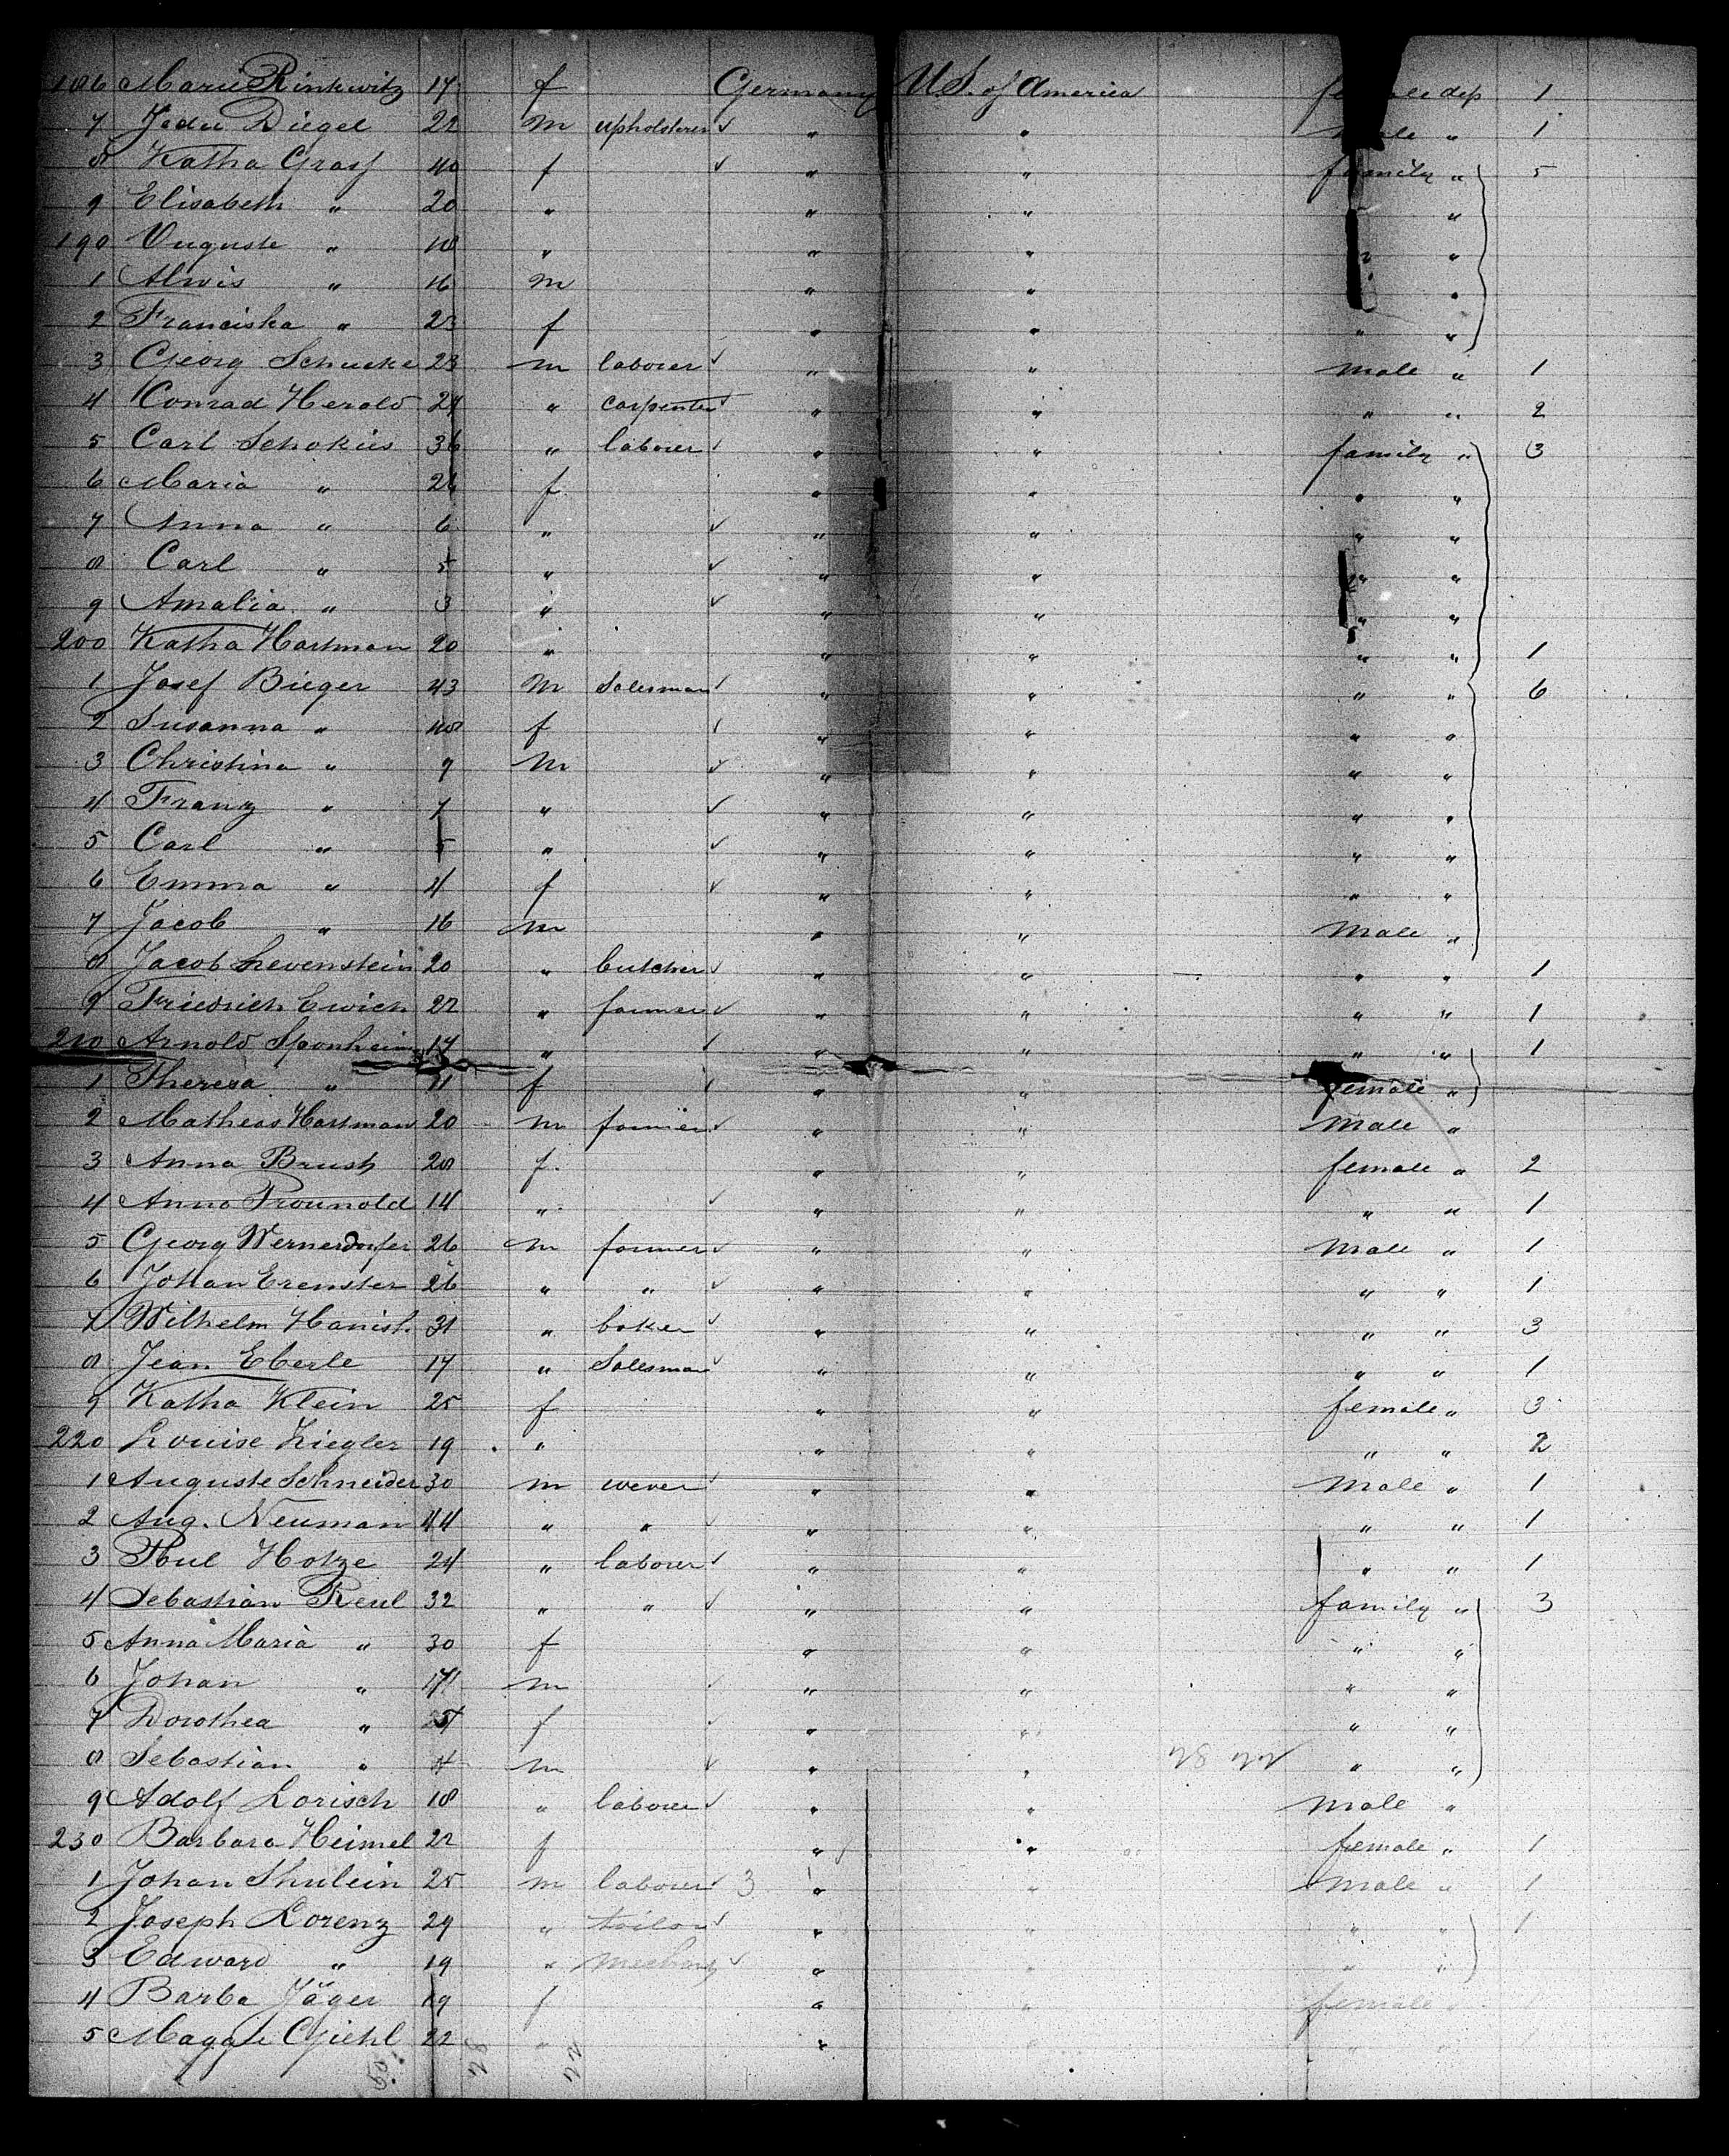 186 Marie Rinkwitz 17 f Germany U.S. of America female dep 1
7 Diegel 22 m upholsterer ✓ " " male " 1
8 Katha Graf 40 f ✓ " " family " 5
9 Elisabeth " 20 " " " "
190 Auguste " 18 " " " " "
1 Alwis " 16 m " " "
2 Franciska " 23 f " " " "
3 Georg Schucke 23 m laborer ✓ " " male " 1
4 Conrad Herold 24 " carpenter " " " " 2
5 Carl Schokius 36 " laborer " " family " 3
6 Maria " 26 f " " " "
7 Anna " 6 " ✓ " " " "
8 Carl " 5 " ✓ " " " "
9 Amalia " 3 " ✓ " " " "
200 Katha Hartman 20 " " " " " 1
1 Josef Bieger 43 m Salesman ✓ " " " " 6
2 Susanna " 48 f ✓ " " " "
3 Christina " 9 m ✓ " " " "
4 Franz " 7 " ✓ " " " "
5 Carl " 5 " ✓ " " " "
6 Emma " 4 f ✓ " " " "
7 Jacob " 16 m " " male "
8 Jacob Levenstein 20 " butcher ✓ " " " " 1
9 Friedrich Ewich 22 " farmer ✓ " " " " 1
210 Arnold Sponheim 17 " ✓ " " " " 1
1 Theresa " 11 f ✓ " " female "
2 Matheas Hartman 20 m farmer ✓ " " male "
3 Anna Brush 28 f. " " female " 2
4 Anna 14 " ✓ " " " " 1
5 Georg Wernerdorfer 26 m farmer ✓ " " male " 1
6 Johan Erenster 26 " " ✓ " " " " 1
7 Wilhelm Hanish 31 " baker ✓ " " " " 3
8 Jean Eberle 17 " Salesman ✓ " " " " 1
9 Katha Klein 25 f " " female " 3
220 Louise Ziegler 19 " " " " " 2
1 Auguste Schneider 30 m wever ✓ " " male " 1
2 Aug. Neuman 44 " " ✓ " " " " 1
3 Paul Hotze 24 " laborer ✓ " " " " 1
4 Sebastian Reul 32 " " ✓ " " family " 3
5 Anna Maria " 30 f " " " "
6 Johan " m ✓ " " " "
7 Dorothea " f ✓ " " " "
8 Sebastian " 4 m ✓ " " " "
9 Adolf Lorisch 18 " laborer ✓ " " male "
230 Barbara Heimel 22 f " " female " 1
1 Johan Shulein 25 m laborer ✓ 3 " " male " 1
2 Joseph Lorenz 29 " tailor ✓ " " " " 1
3 Edward " 19 " ✓ " " " "
4 Barba Jäger 19 f " " female "
5 Maggie Giehl 22 " " " " "